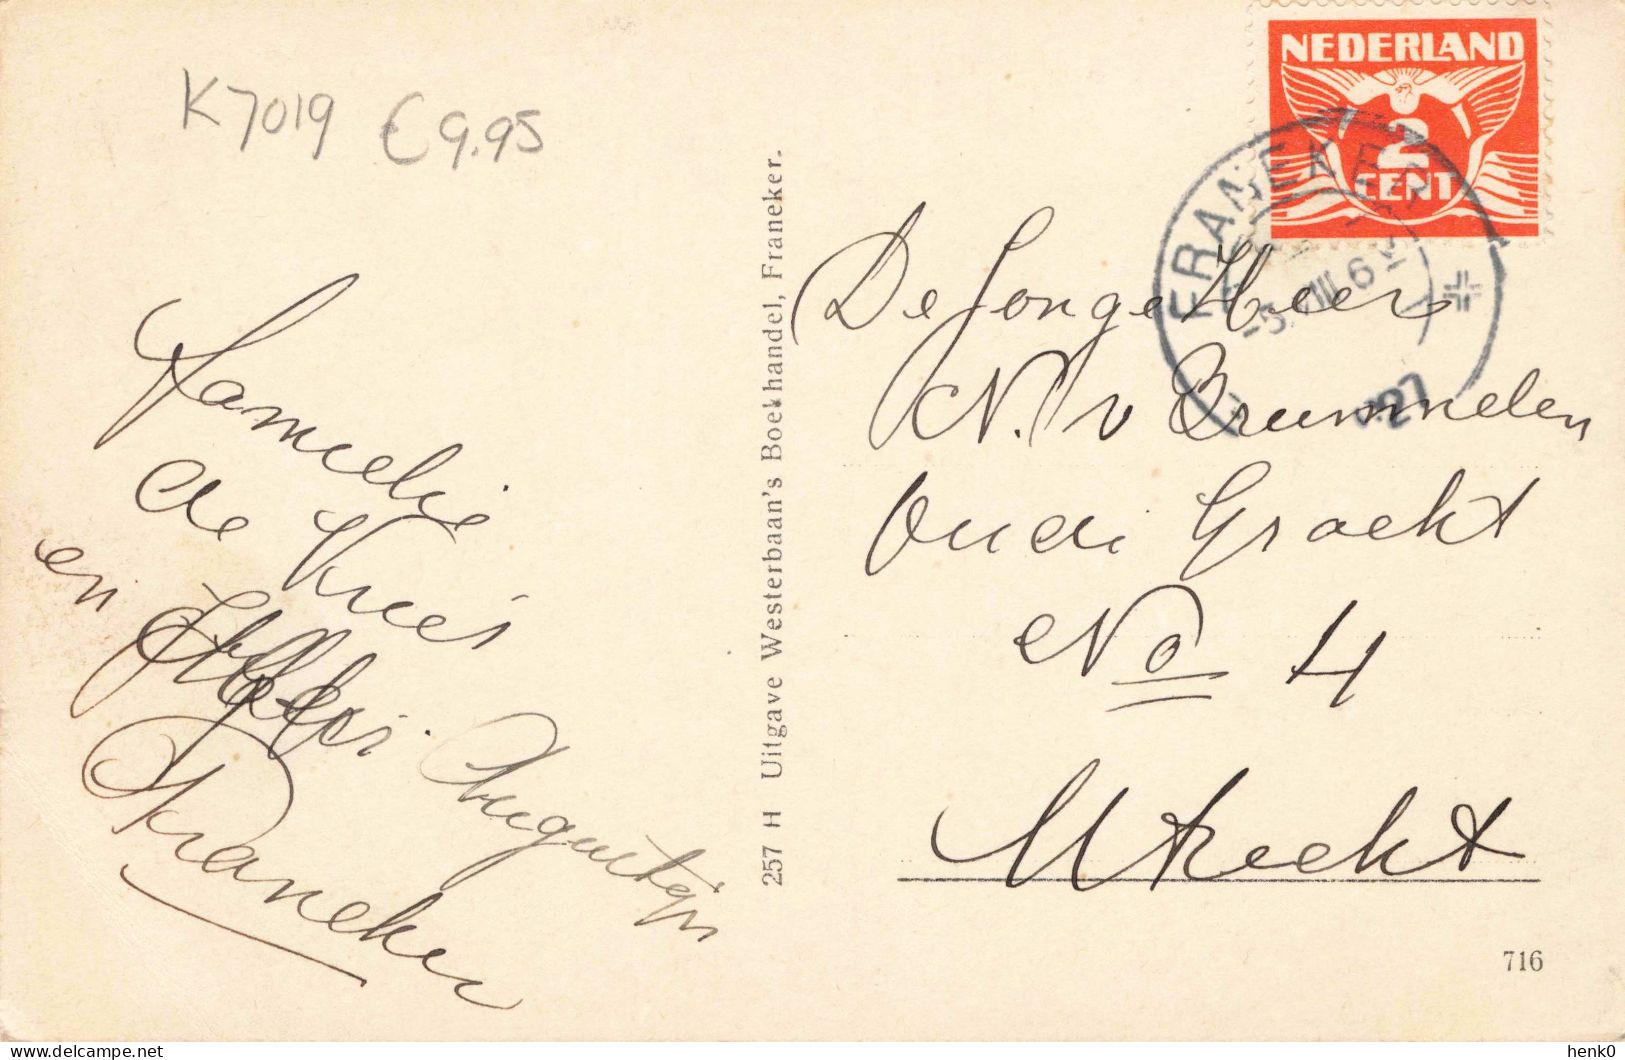 K7019 € 9.95
NEDERLAND
2
CENT
FRANEKER
-5.VIII.6
27
De Jonge Heer
N. v Brummelen
Oude Gracht
No 4
Utrecht
Famielie
de Vries
en
Augustijn
Franeker
257 H Uitgave Westerbaan's Boekhandel, Franeker.
716
henk0